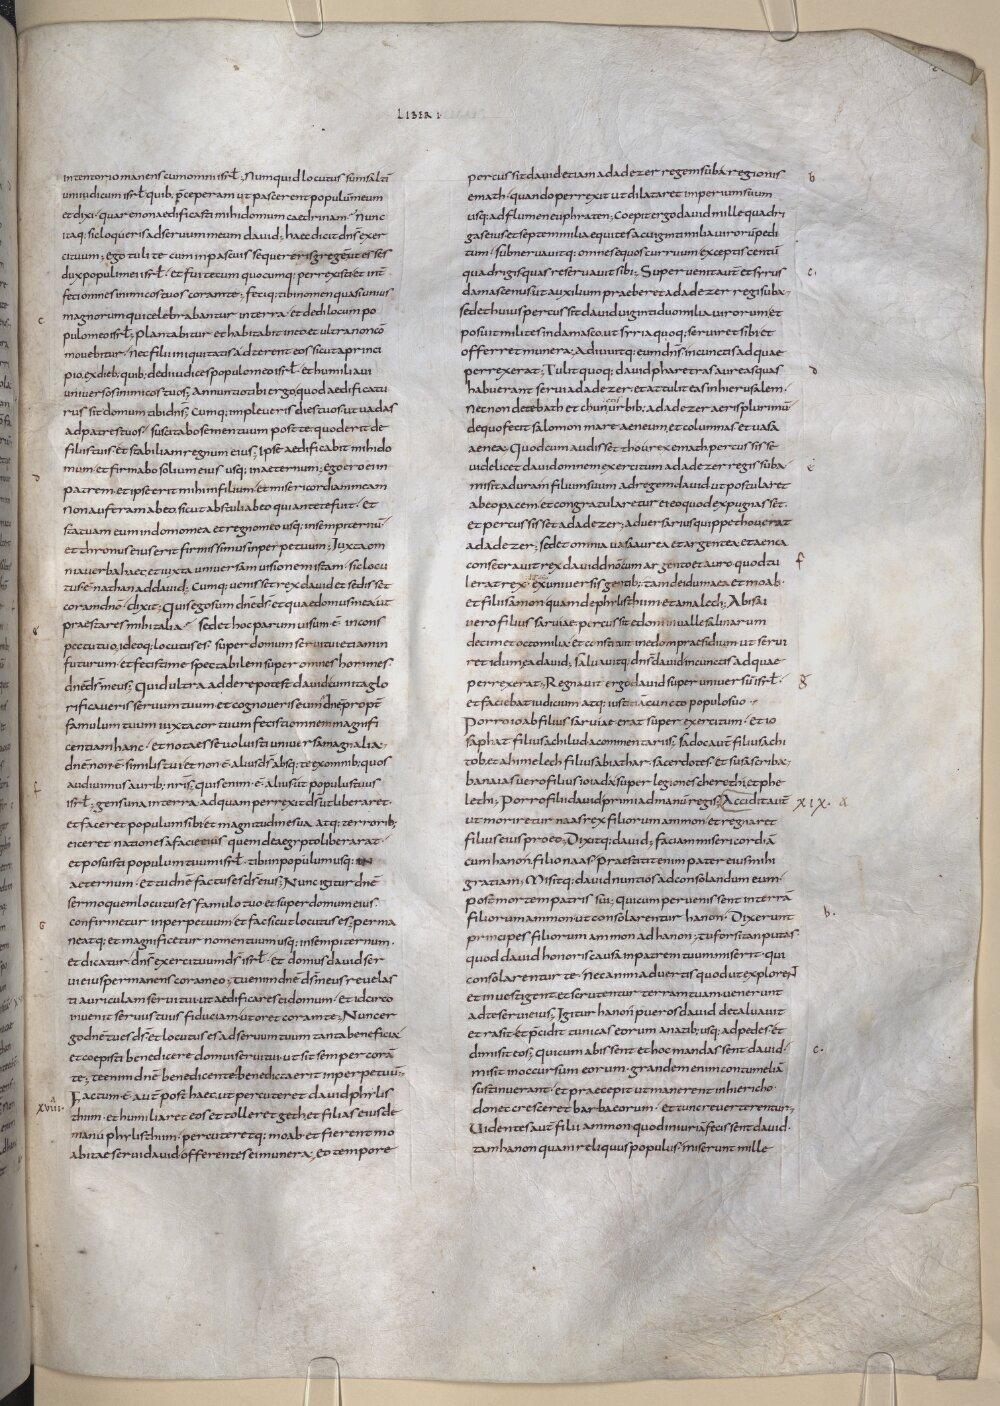 LIBER I
intentorio manens cum omni isrł. Numquid locutus sum saltī
uni iudicum isrł quib; p̄ceperam ut pascerent populū meum
et dixi. quare non aedificasti mihi domum caedrinam. Nunc
itaq; sic loqueris ad servum meum david; haec dicit dn̄s exer
cituum; ego tuli te cum in pascuis sequereris gregē ut esses
dux populi mei isrł. et fui tecum quocumq; perrexisti et int̄
feci omnes inimicos tuos coram te; feciq; tibi nomen quasi unius
magnorum qui celebrabantur in terra; et dedi locum po
pulo meo isrł; Plantabitur et habitabit in eo et ultra non cō
movebitur. Nec filii iniquitatis adterent eos sicut a princi
pio. ex dieb; quib; dedi iudices populo meo isrł. et humiliavi
universos inimicos tuos; Annuntio tibi ergo quod aedificatu
rus sit domum tibi dn̄s; Cumq; impleveris dies tuos ut vadas
ad patres tuos. suscitabo semen tuum post te. quod erit de
filiis tuis. et stabiliam regnum eius; Ipse aedificabit mihi do
mum. et firmabo solium eius usq; in aeternum; ego ero ei in
patrem. et ipse erit mihi in filium. et misericordiam meam
non auferam ab eo. sicut abstuli ab eo qui ante te fuit. et
statuam eum in domo mea et regno meo usq; in sempiternū
et thronus eius erit firmissimus in perpetuum; Iuxta om
nia verba haec et iuxta universam visionem istam. sic locu
tus ē nathan ad david; Cumq; venisset rex david et sedisset
coram dn̄o. dixit; Quis ego sum dn̄e d̄s et quae domus mea ut
praestares mihi talia. sed et hoc parum visum ē. in cons
pectu tuo. ideoq; locutus es. super domum servi tui etiam in
futurum. et fecisti me spectabilem super omnes homines
dn̄e d̄s meus; Quid ultra addere potest david cum ita glo
rificaveris servum tuum et cognoveris eum; dn̄e propt̄
famulum tuum iuxta cor tuum fecisti omnem magnifi
centiam hanc. et nota esse voluisti universa magnalia;
dn̄e non ē similis tui et non ē alius d̄s absq; te ex omnib; quos
audivimus aurib; nr̄is; Quis enim ē. alius ut populus tuus
isrł; gens una in terra; ad quam perrexit d̄s ut liberaret.
et faceret populum sibi. et magnitudine sua atq; terrorib;
eiceret nationes a facie eius quem de aegypto liberarat.
et posuisti populum tuum isrł. tibi in populum usq; in
aeternum. et tu dn̄e factus es d̄s eius; Nunc igitur dn̄e
sermo quem locutus es famulo tuo et super domum eius.
confirmetur in perpetuum et fac sicut locutus es; perma
neatq; et magnificetur nomen tuum usq; in sempiternum.
et dicatur dn̄s exercituum d̄s isrł. et domus david ser
vi eius permanens coram eo; tu enim dn̄e d̄s meus revelas
ti auriculam servi tui ut aedificares ei domum. et idcirco
invenit servus tuus fiduciam. ut oret coram te; Nunc er
go dn̄e tu es d̄s. et locutus es ad servum tuum tanta beneficia
et coepisti benedicere domui servi tui. ut sit semper corā
te; te enim dn̄e benedicente. benedicta erit in perpetuū;
Factum ē aut̄ post haec. ut percuteret david phylis
thiim. et humiliaret eos. et tolleret geth et filias eius de
manu phylisthiim. percuteretq; moab. et fierent mo
abitae servi david offerentes ei munera; eo tempore
c
d
e
f
G
XVIII. a
percussit david etiam adadezer regem suba regionis
emath. quando perrexit ut dilataret imperium suum
usq; ad flumen euphraten; Coepit ergo david mille quadri
gas eius et septem milia equites ac viginti milia virorū pedi
tum. subnervavitq; omnes equos curruum exceptis centū
quadrigis quas reservavit sibi; Supervenit aut̄ et syrus
damascenus ut auxilium praeberet adadezer regi suba.
sed et huius percussit david viginti duo milia virorum et
posuit milites in damasco. ut syria quoq; serviret sibi et
offerret munera; Adiuvitq; eum dn̄s in cunctis ad quae
perrexerat; Tulit quoq; david pharetras aureas quas
habuerant servi adadezer. et attulit eas in hierusalem.
Necnon de tebath et chun urbib; adadezer aeris plurimū
de quo fecit salomon mare aeneum. et columnas et vasa
aenea; Quod cum audisset thou rex emath percussisse
videlicet david omnem exercitum adadezer regis suba.
misit aduram filium suum ad regem david ut postularet
ab eo pacem. et congratularetur ei eo quod expugnasset.
et percussisset adadezer; adversarius quippe thou erat
adadezer; sed et omnia vasa aurea et argentea. et aenea
consecravit rex david dn̄o cum argento et auro quod tu
lerat rex ex universis gentib; tam de idumaea et moab.
et filiis amon. quam de phylisthiim et amalech; Abisai
vero filius sarviae percussit edom in valle salinarum
decim et octo milia. et constituit in edom praesidium ut servi
ret idumea david; salvavitq; dn̄s david in cunctis ad quae
perrexerat; Regnavit ergo david super universū isrł.
et faciebat iudicium atq; iustitiā cuncto populo suo.
Porro ioab filius sarviae erat super exercitum. et io
saphat filius achilud a commentariis; sadoc aut̄ filius achi
tob. et ahimelech filius abiathar. sacerdotes. et susa scriba;
banaias vero filius ioiada super legiones cherethi et phe
lethi; Porro filii david primi ad manū regis; Accidit aut̄
ut moriretur naas rex filiorum ammon. et regnaret
filius eius pro eo; Dixitq; david; faciam misericordiā
cum hanon filio naas praestitit enim pater eius mihi
gratiam; Misitq; david nuntios ad consolandum eum.
post mortem patris sui; qui cum pervenissent in terrā
filiorum ammon. ut consolarentur hanon. Dixerunt
principes filiorum ammon ad hanon; tu forsitan putas
quod david honoris causa in patrem tuum miserit. qui
consolarentur te. Nec animadvertis quod ut explorent
et investigent et scrutentur terram tuam. venerunt
ad te servi eius; Igitur hanon pueros david decalvavit
et rasit. et p̄cidit tunicas eorum a natib; usq; ad pedes. et
dimisit eos; qui cum abissent et hoc mandassent david.
misit in occursum eorum. grandem enim contumeliā
sustinuerant. et praecepit ut manerent in hiericho.
donec cresceret barba eorum. et tunc reverterentur;
Videntes aut̄ filii ammon quod iniuriā fecissent david.
tam hanon quam reliquus populus. miserunt mille
b
c.
d
e
f
g
XIX. a
b.
c.